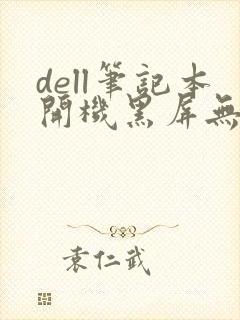 dell筆記本
開機黑屏無
袁仁武